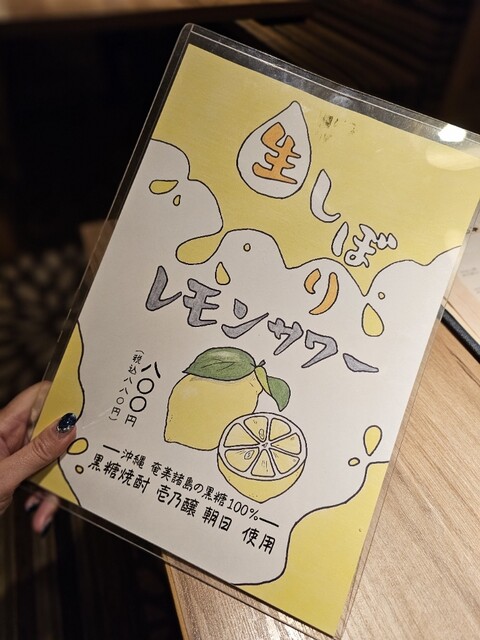 生しぼり
レモンサワー
八〇〇円
(税込八八〇円)
沖縄 奄美諸島の黒糖100%
黒糖焼酎 壱乃醸 朝日 使用